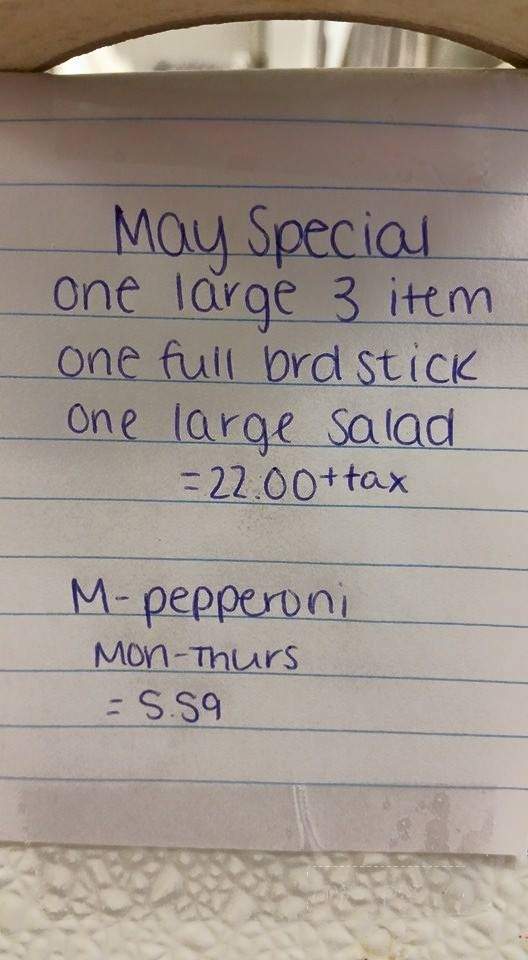 May Special
one large 3 item
one full brd stick
one large salad
=22.00+tax
M-pepperoni
Mon-Thurs
= 5.59